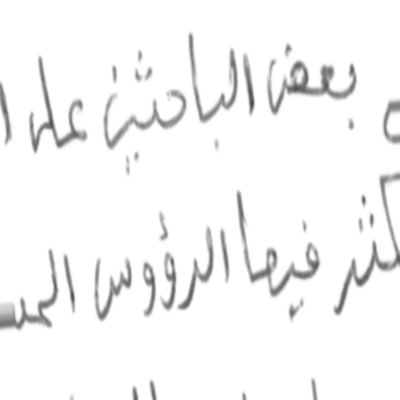 بعض الباحثين على ا
كثر فيها الرؤوس المد